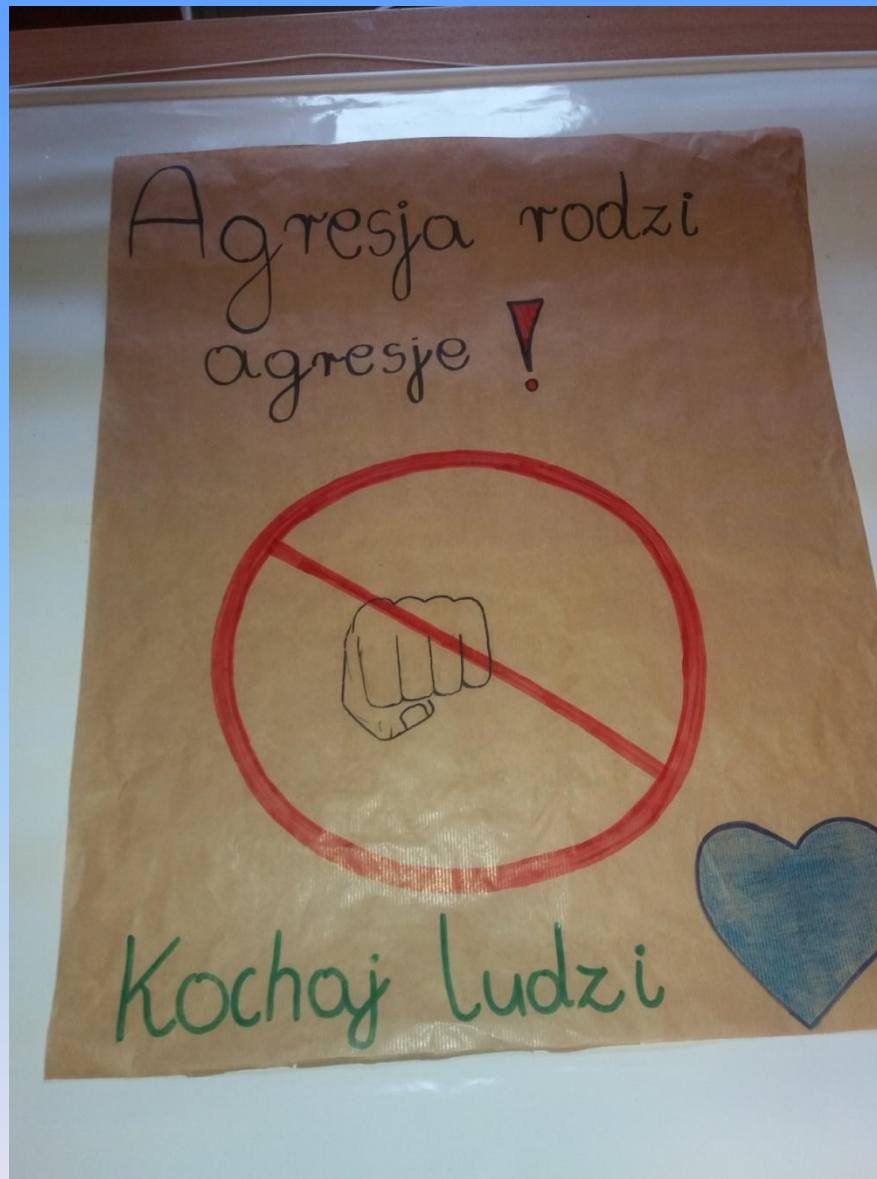 Agresja rodzi
agresje!
Kochaj ludzi